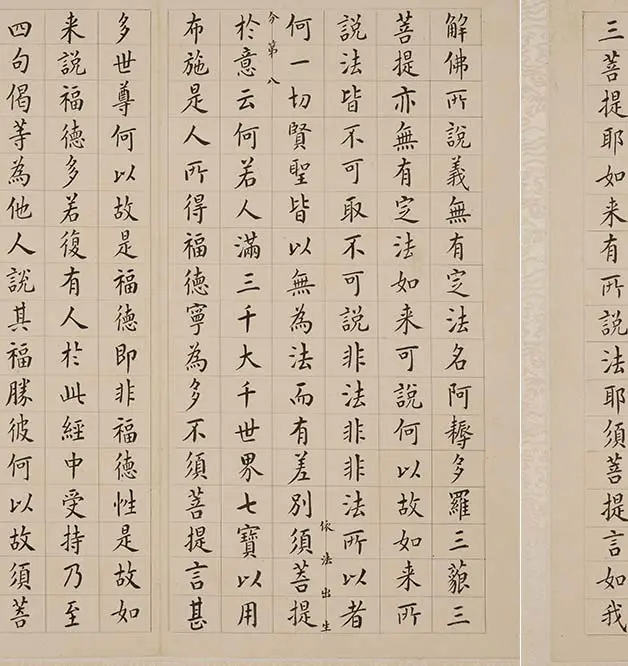 三菩提耶如来有所說法耶須菩提言如我
解佛所說義無有㝎法名阿耨多羅三藐三
菩提亦無有㝎法如来可說何以故如来所
說法皆不可取不可說非法非非法所以者
何一切賢聖皆以無為法而有差別須菩提
依法出生
分第八
於意云何若人滿三千大千世界七寶以用
布施是人所得福德寧為多不須菩提言甚
多世尊何以故是福德即非福德性是故如
来說福德多若復有人於此經中受持乃至
四句偈等為他人說其福勝彼何以故須菩